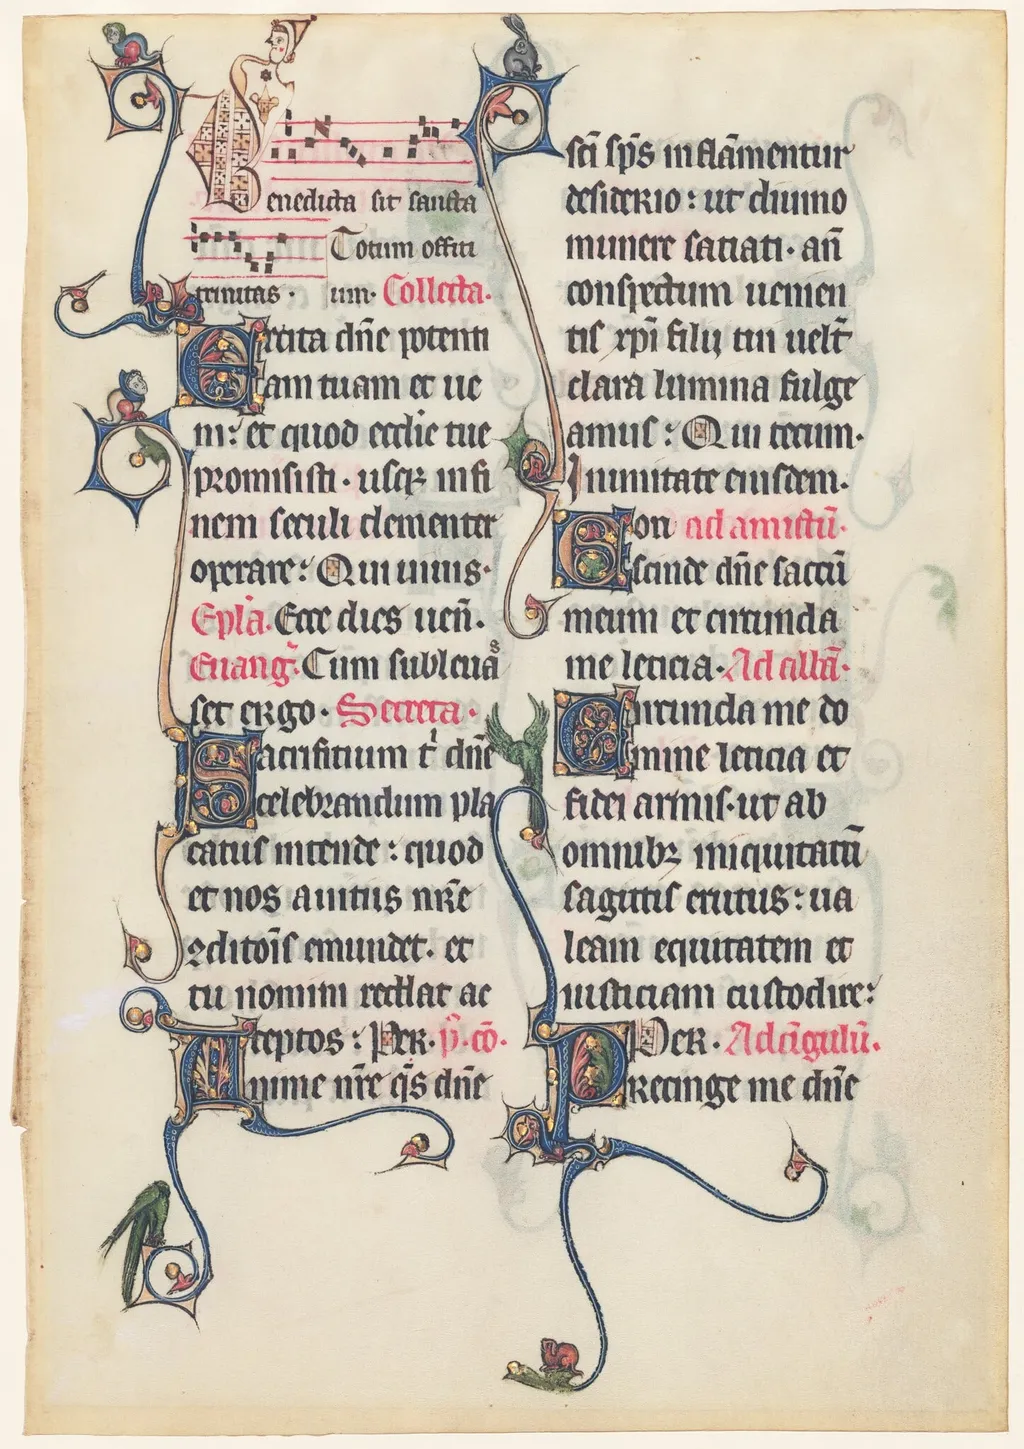 Benedicta sit sancta
Totum offiti
trinitas · um· Collecta·
Excita dn̄e potenti
am tuam et ue
ni: et quod ecclīe tue
promisisti · usq₃ in fi
nem seculi clementer
operare: Qui uiuis·
Epl̄a· Ecce dies uen̄·
Euanḡ· Cum subleuas
set ergo· Secreta·
Sacrifitium t̄ dn̄e
celebrandum pla
catus intende: quod
et nos a uitiis nr̄e
ꝯditōīs emundet· et
tuo nomini reddat ac
ceptos: Per· p̄·cō·
Anime nr̄e q̄s dn̄e
sc̄i sp̄s inflāmentur
desiderio: ut diuino
munere satiati· an̄
conspectum uenien
tis xp̄i filij tui uelt̄
clara lumina fulge
amus: Qui tecum·
In unitate eiusdem·
on ad amictū·
scinde dn̄e saccū
meum et circunda
me leticia· Ad albā·
Circunda me do
mine leticia et
fidei armis· ut ab
omnib₃ iniquitatū
sagittis erutus: ua
leam equitatem et
iusticiam custodire:
Per· Ad cīgulū·
Precinge me dn̄e